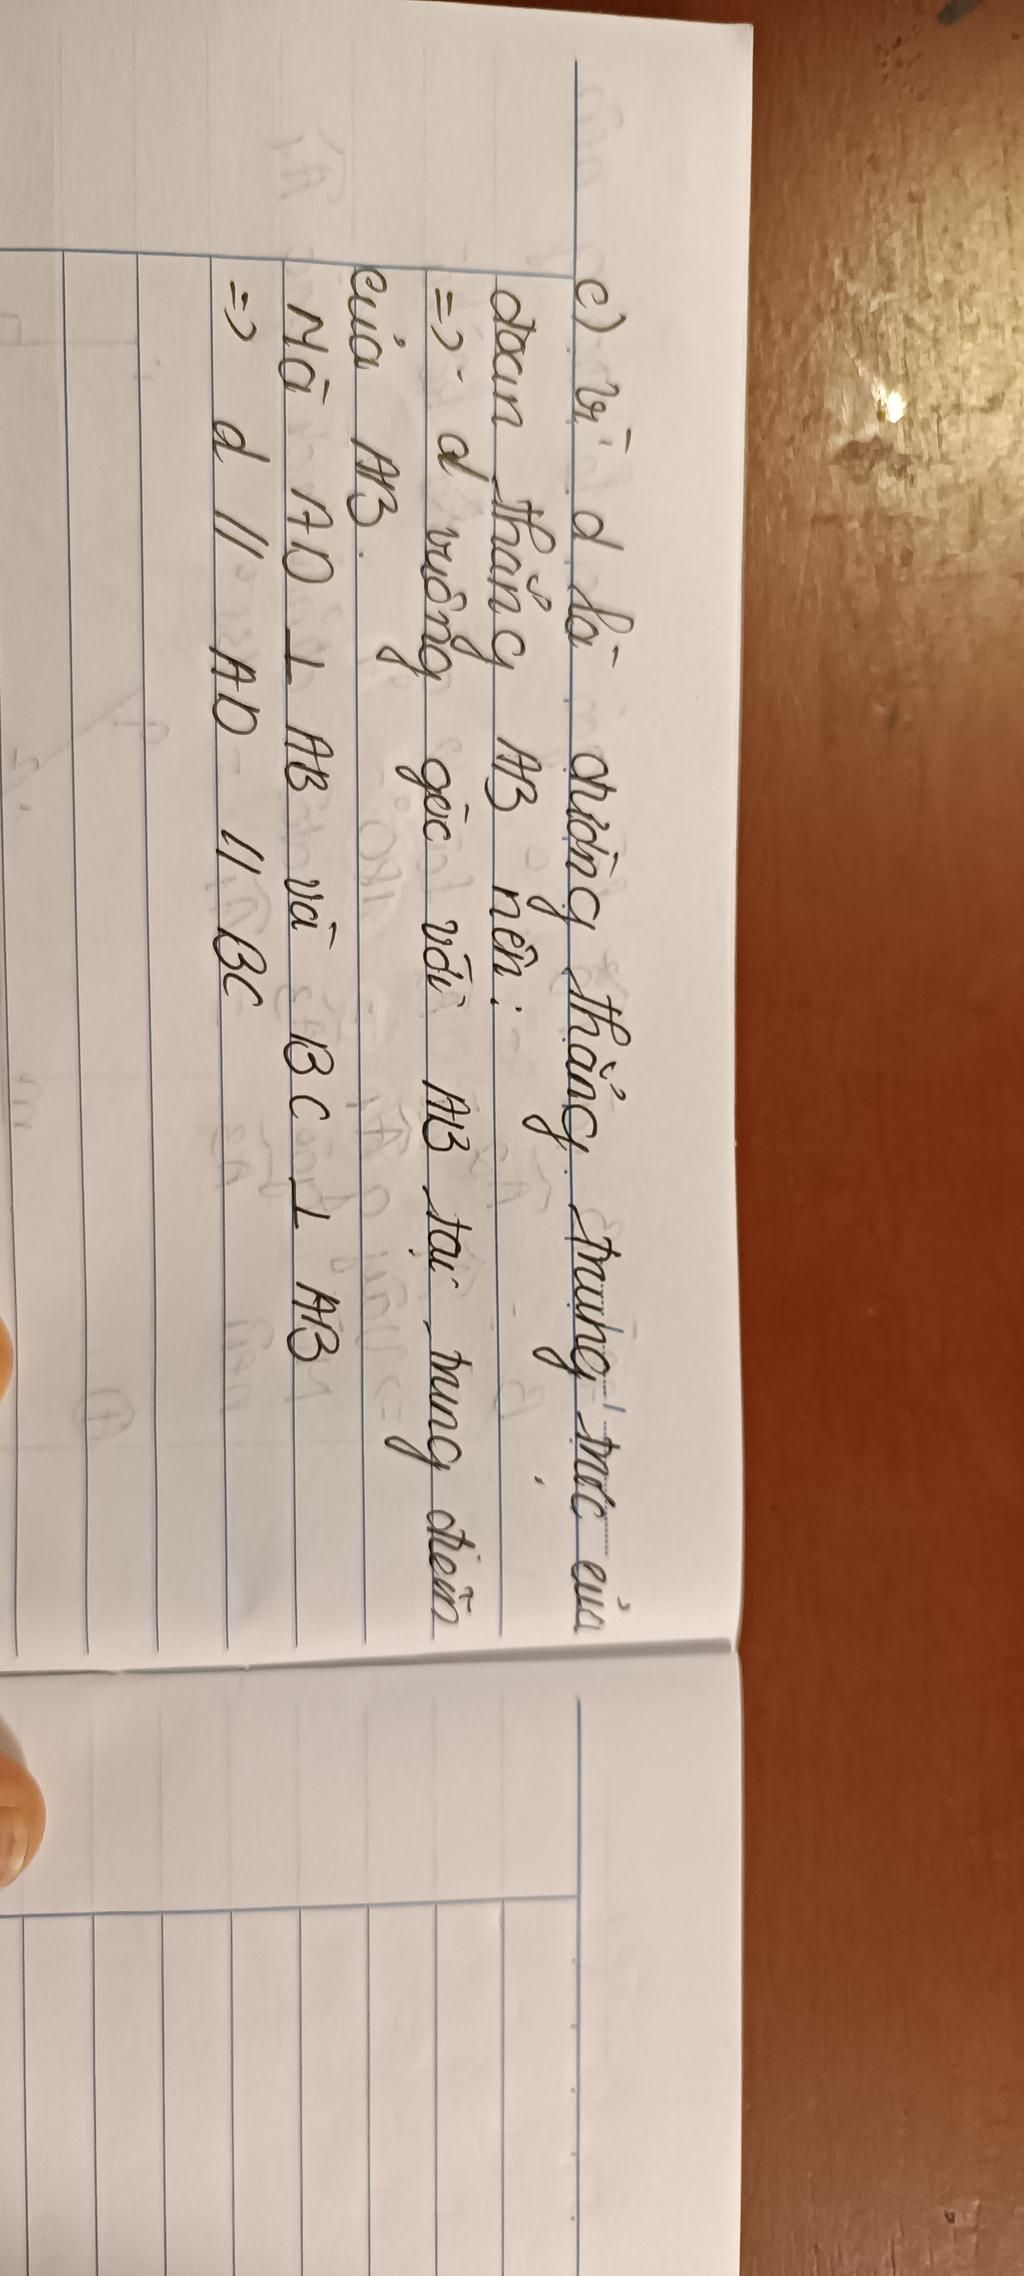 c) vì d là đường thẳng trung trực của
đoạn thẳng AB nên:
=> d vuông góc với AB tại trung điểm
của AB.
Mà AD ⊥ AB và BC ⊥ AB
=> d // AD // BC